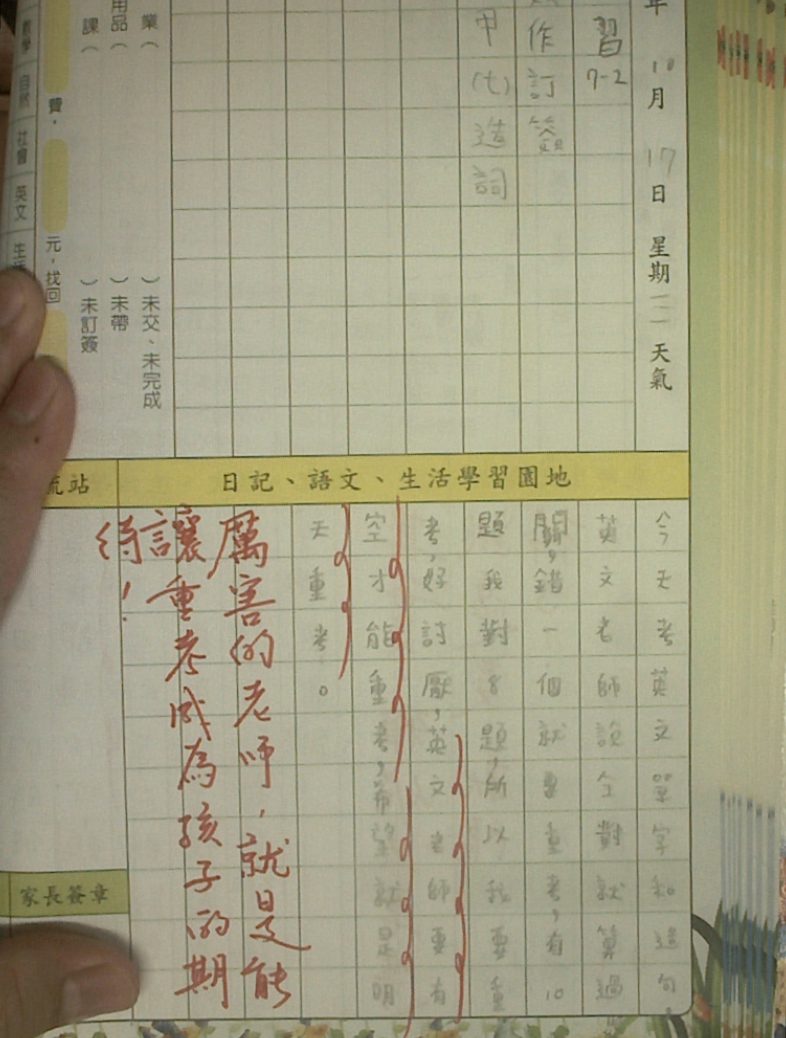 年 10 月 17 日 星期三 天氣
習 7-2
作訂簽
甲(七)造詞
業( )未交、未完成
用品( )未帶
課( )未訂簽
費, 元,找回
自然
社會
英文
日記、語文、生活學習園地
流站
今天考英文單字和造句,
英文老師說全對就算過
關,錯一個就要重考,有10
題我對8題,所以我要重
考,好討厭,英文老師要有
空才能重考,希望就是明
天重考。
厲害的老師,就是能
讓重考成為孩子的期
待!
家長簽章